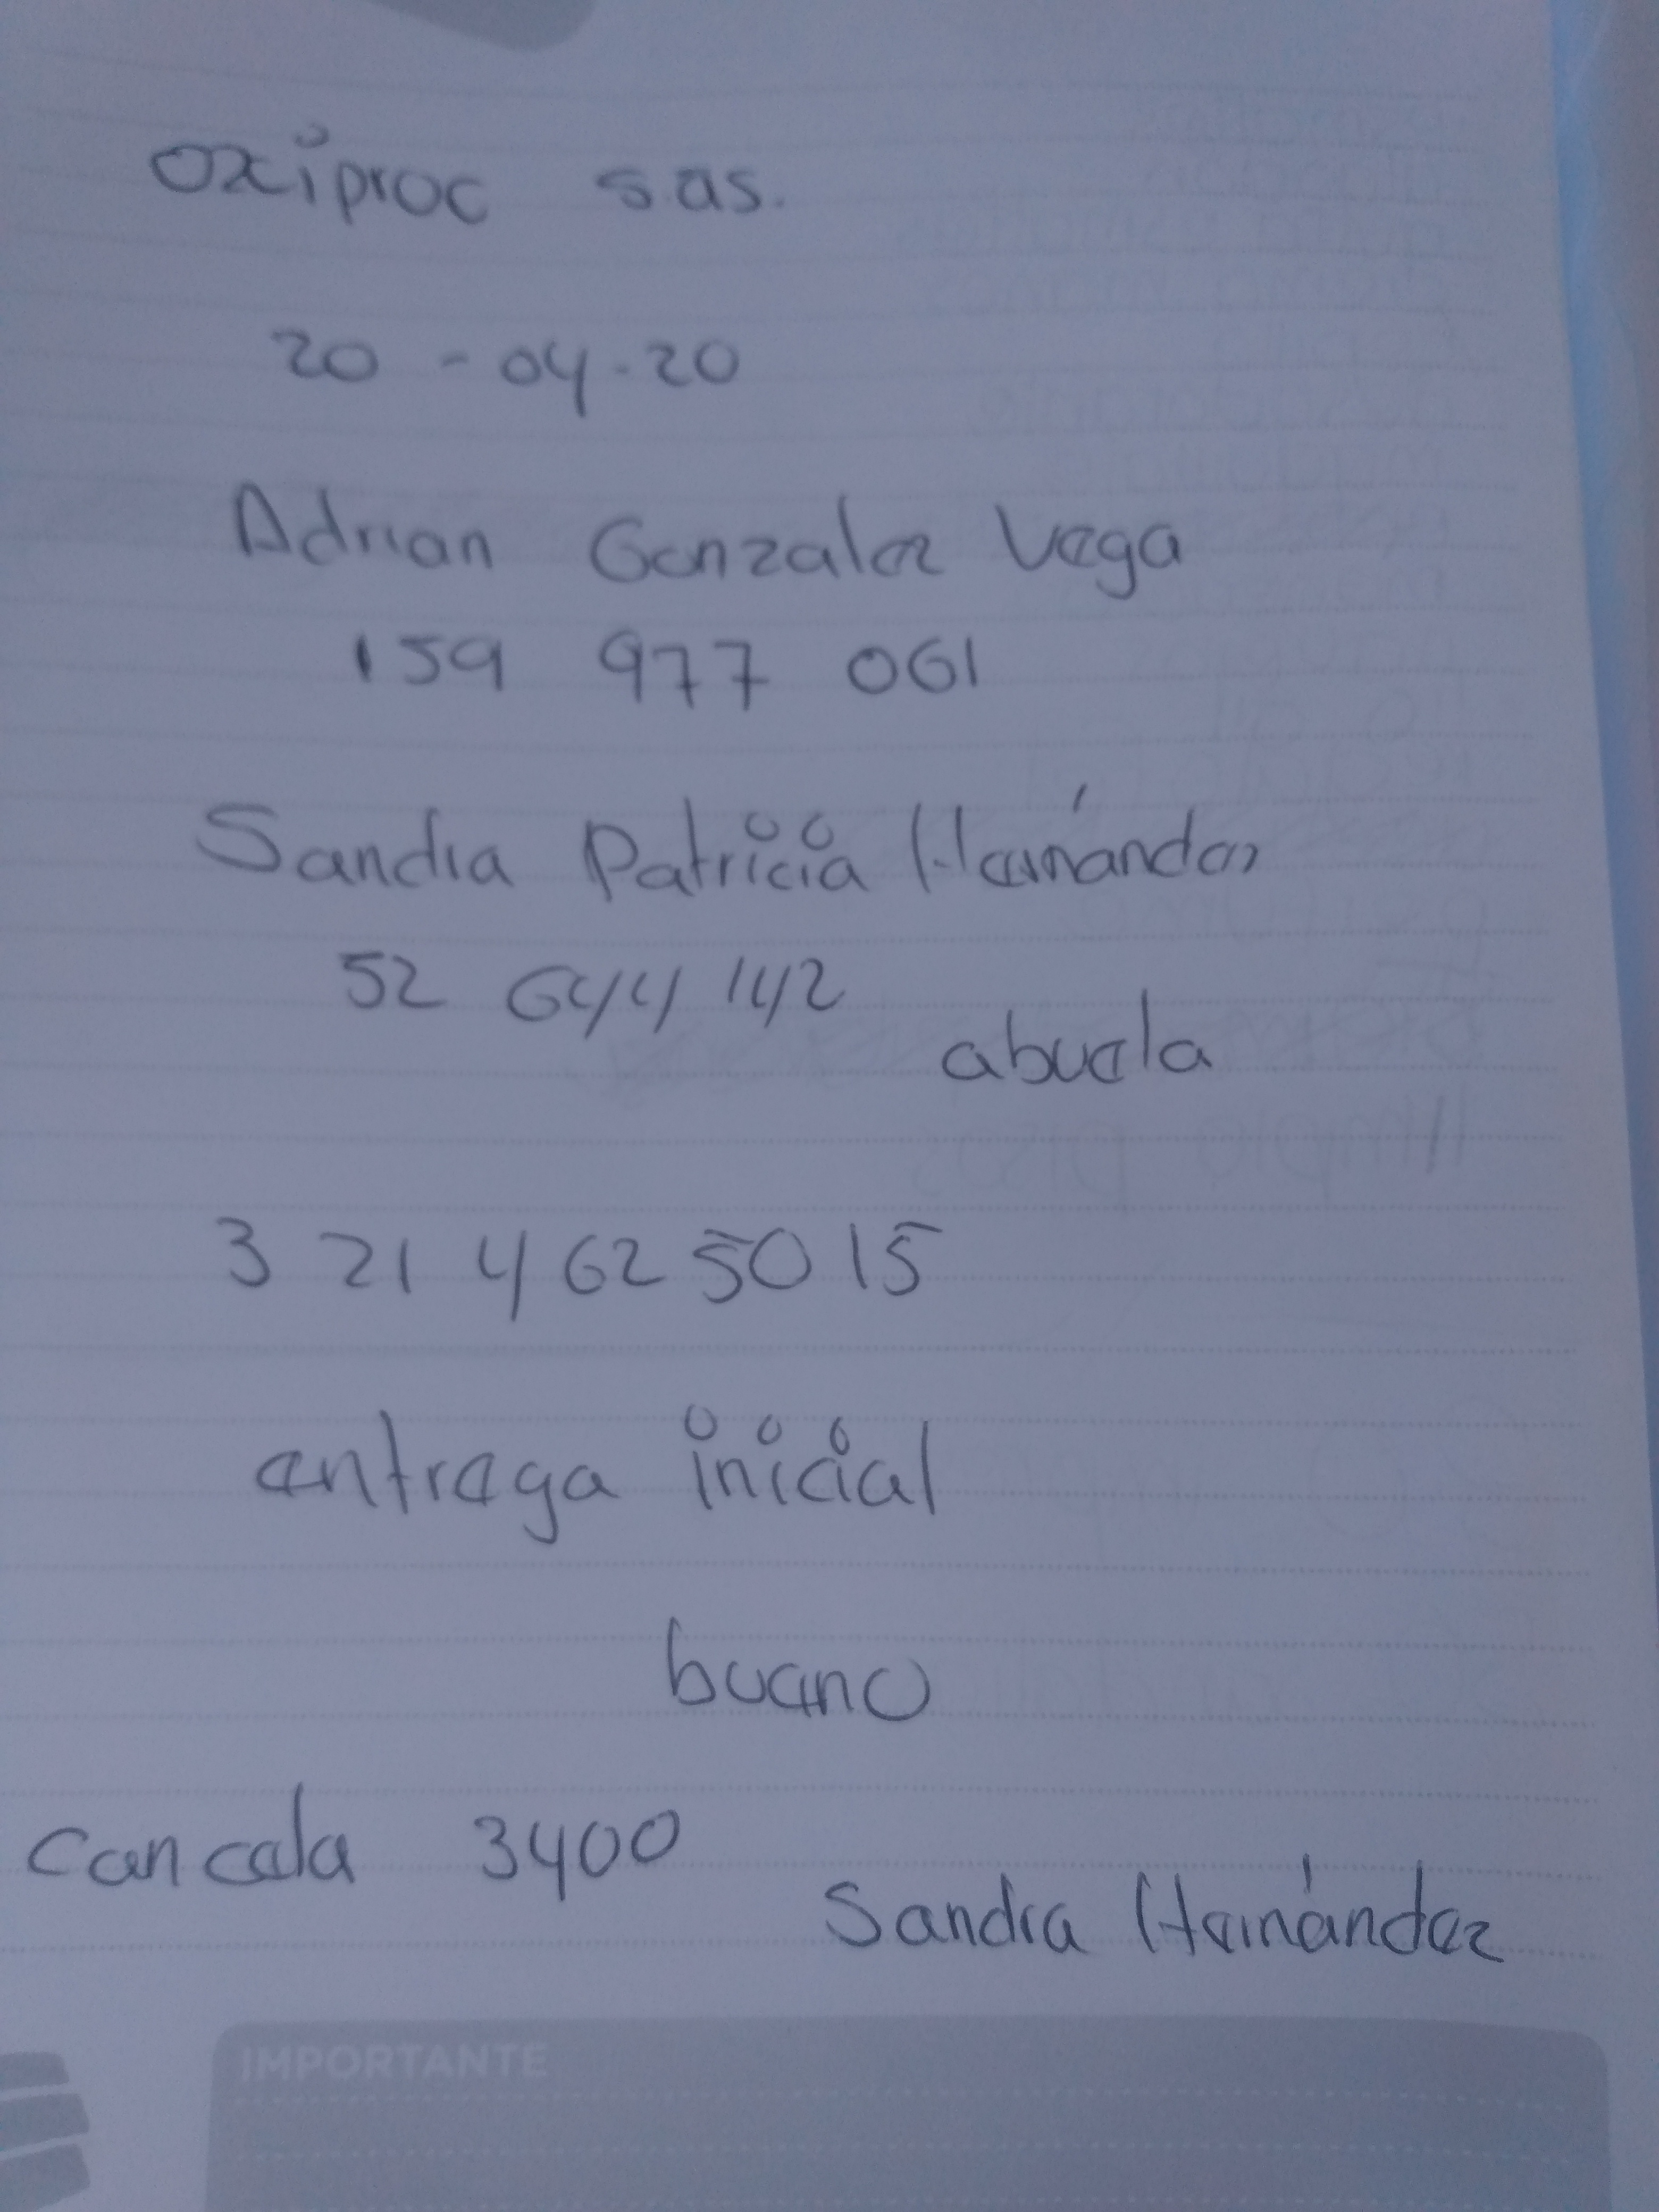 Oxiproc s.as.
20 - 04 - 20
Adrian Gonzalez Vega
159 977 061
Sandra Patricia Hernández
52 644 142
abuela
3 21 4 62 50 15
entrega inicial
bueno
cancela 3400
Sandra Hernández
IMPORTANTE